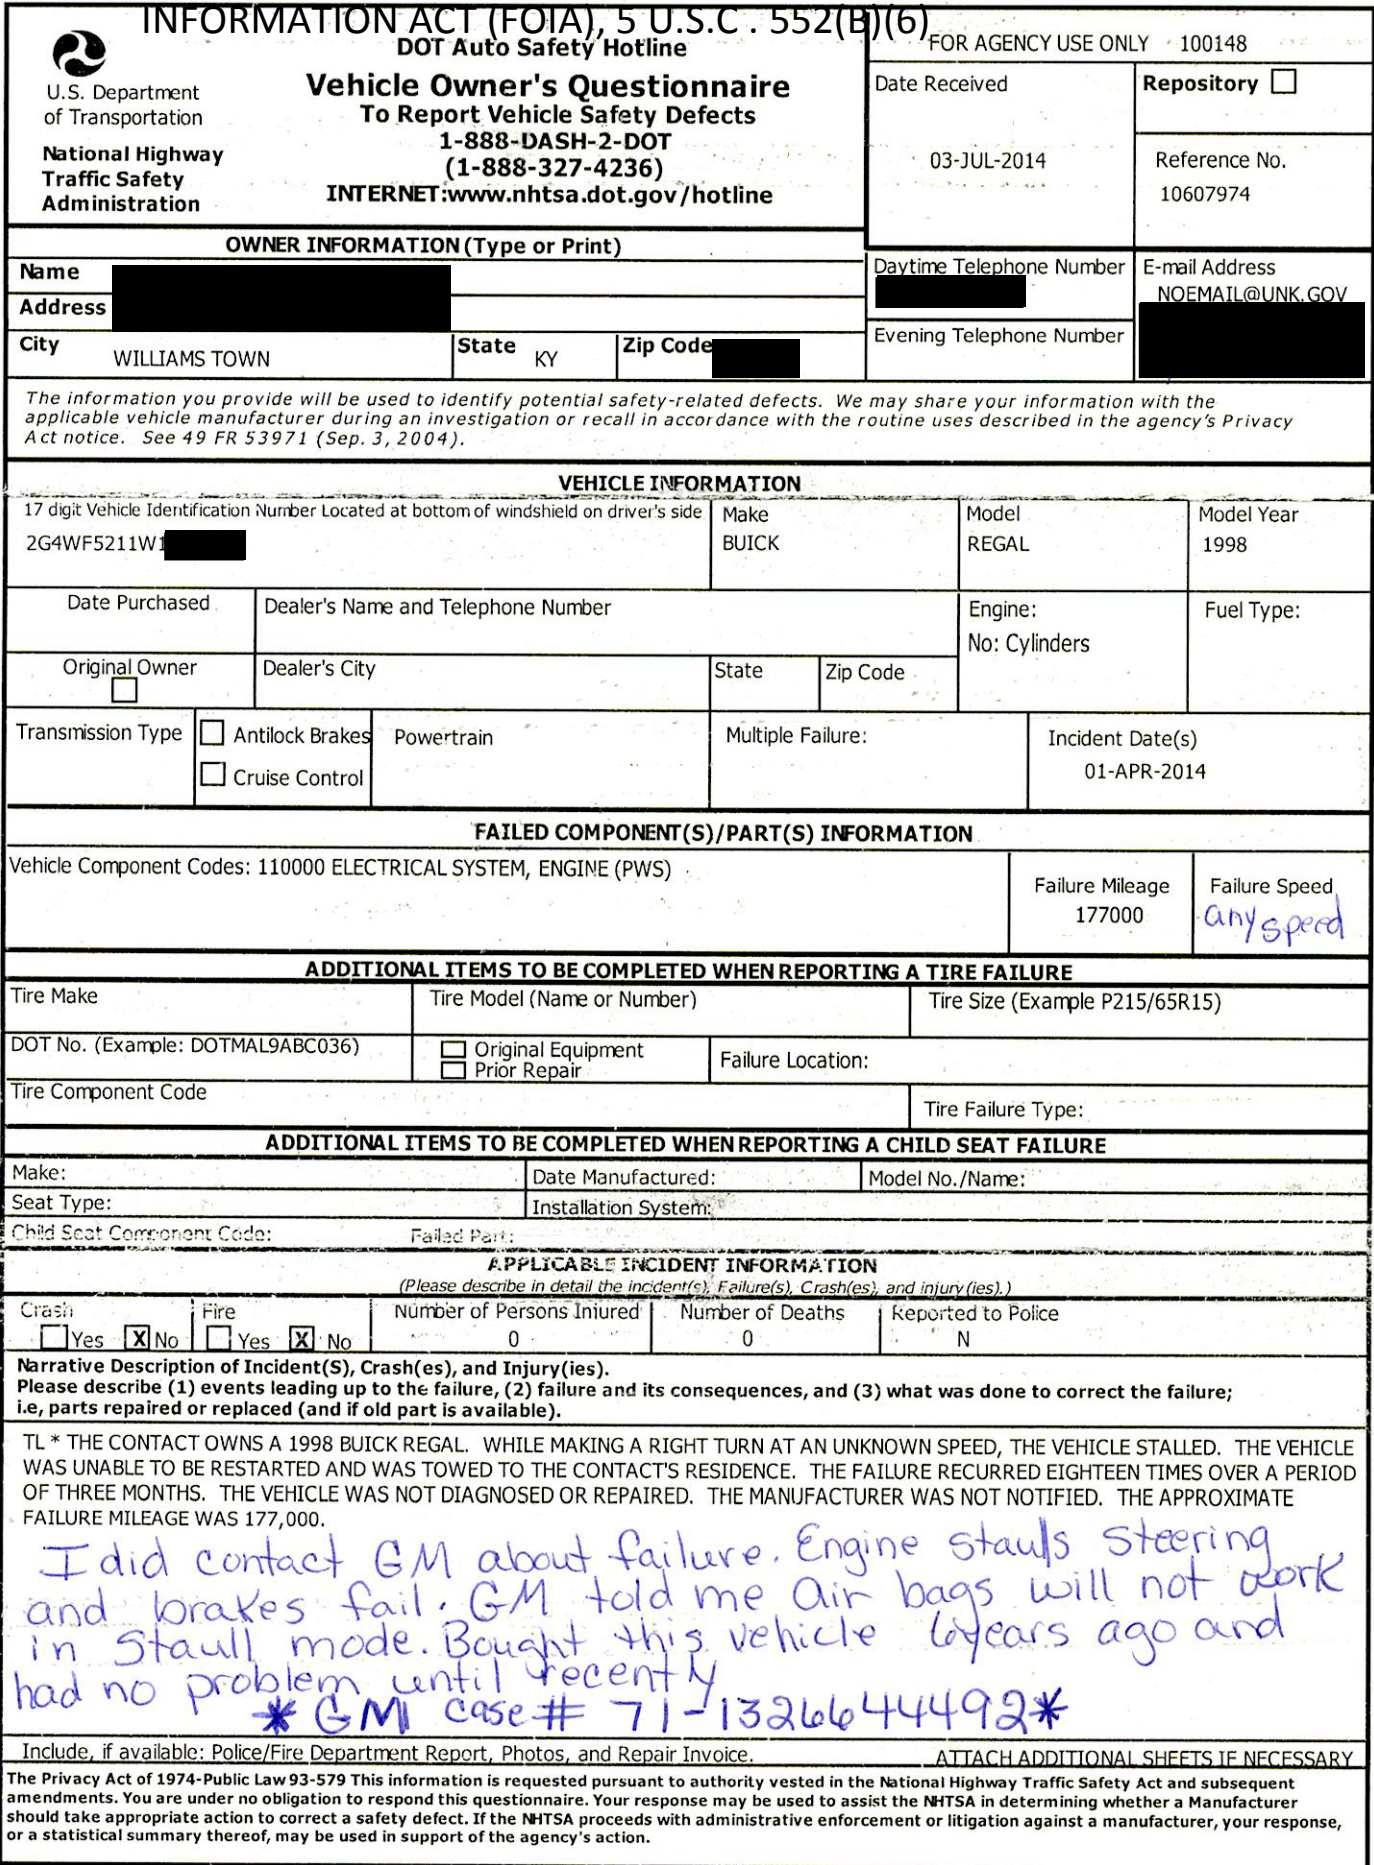 INFORMATION ACT (FOIA), 5 U.S.C . 552(B)(6)
U.S. Department
of Transportation
National Highway
Traffic Safety
Administration
DOT Auto Safety Hotline
Vehicle Owner's Questionnaire
To Report Vehicle Safety Defects
1-888-DASH-2-DOT
(1-888-327-4236)
INTERNET:www.nhtsa.dot.gov/hotline
FOR AGENCY USE ONLY 100148
Date Received
03-JUL-2014
Repository
Reference No.
10607974
OWNER INFORMATION (Type or Print)
Name
Address
City WILLIAMS TOWN State KY Zip Code
Daytime Telephone Number
Evening Telephone Number
E-mail Address
NOEMAIL@UNK.GOV
The information you provide will be used to identify potential safety-related defects. We may share your information with the
applicable vehicle manufacturer during an investigation or recall in accordance with the routine uses described in the agency's Privacy
Act notice. See 49 FR 53971 (Sep. 3, 2004).
VEHICLE INFORMATION
17 digit Vehicle Identification Number Located at bottom of windshield on driver's side
2G4WF5211W1
Make
BUICK
Model
REGAL
Model Year
1998
Date Purchased
Dealer's Name and Telephone Number
Engine:
No: Cylinders
Fuel Type:
Original Owner
Dealer's City
State
Zip Code
Transmission Type
Antilock Brakes
Cruise Control
Powertrain
Multiple Failure:
Incident Date(s)
01-APR-2014
FAILED COMPONENT(S)/PART(S) INFORMATION
Vehicle Component Codes: 110000 ELECTRICAL SYSTEM, ENGINE (PWS)
Failure Mileage
177000
Failure Speed
any speed
ADDITIONAL ITEMS TO BE COMPLETED WHEN REPORTING A TIRE FAILURE
Tire Make
Tire Model (Name or Number)
Tire Size (Example P215/65R15)
DOT No. (Example: DOTMAL9ABC036)
Original Equipment
Prior Repair
Failure Location:
Tire Component Code
Tire Failure Type:
ADDITIONAL ITEMS TO BE COMPLETED WHEN REPORTING A CHILD SEAT FAILURE
Make:
Date Manufactured:
Model No./Name:
Seat Type:
Installation System:
Child Seat Component Code:
Failed Part:
APPLICABLE INCIDENT INFORMATION
(Please describe in detail the incident(s), Failure(s), Crash(es), and injury(ies).)
Crash
Yes X No
Fire
Yes X No
Number of Persons Injured
0
Number of Deaths
0
Reported to Police
N
Narrative Description of Incident(S), Crash(es), and Injury(ies).
Please describe (1) events leading up to the failure, (2) failure and its consequences, and (3) what was done to correct the failure;
i.e, parts repaired or replaced (and if old part is available).
TL * THE CONTACT OWNS A 1998 BUICK REGAL. WHILE MAKING A RIGHT TURN AT AN UNKNOWN SPEED, THE VEHICLE STALLED. THE VEHICLE
WAS UNABLE TO BE RESTARTED AND WAS TOWED TO THE CONTACT'S RESIDENCE. THE FAILURE RECURRED EIGHTEEN TIMES OVER A PERIOD
OF THREE MONTHS. THE VEHICLE WAS NOT DIAGNOSED OR REPAIRED. THE MANUFACTURER WAS NOT NOTIFIED. THE APPROXIMATE
FAILURE MILEAGE WAS 177,000.
I did contact GM about failure. Engine staulls steering
and brakes fail. GM told me air bags will not work
in staull mode. Bought this vehicle 6years ago and
had no problem until recently
* GM case # 71-1326644492*
Include, if available: Police/Fire Department Report, Photos, and Repair Invoice.
ATTACH ADDITIONAL SHEETS IF NECESSARY
The Privacy Act of 1974-Public Law 93-579 This information is requested pursuant to authority vested in the National Highway Traffic Safety Act and subsequent
amendments. You are under no obligation to respond this questionnaire. Your response may be used to assist the NHTSA in determining whether a Manufacturer
should take appropriate action to correct a safety defect. If the NHTSA proceeds with administrative enforcement or litigation against a manufacturer, your response,
or a statistical summary thereof, may be used in support of the agency's action.